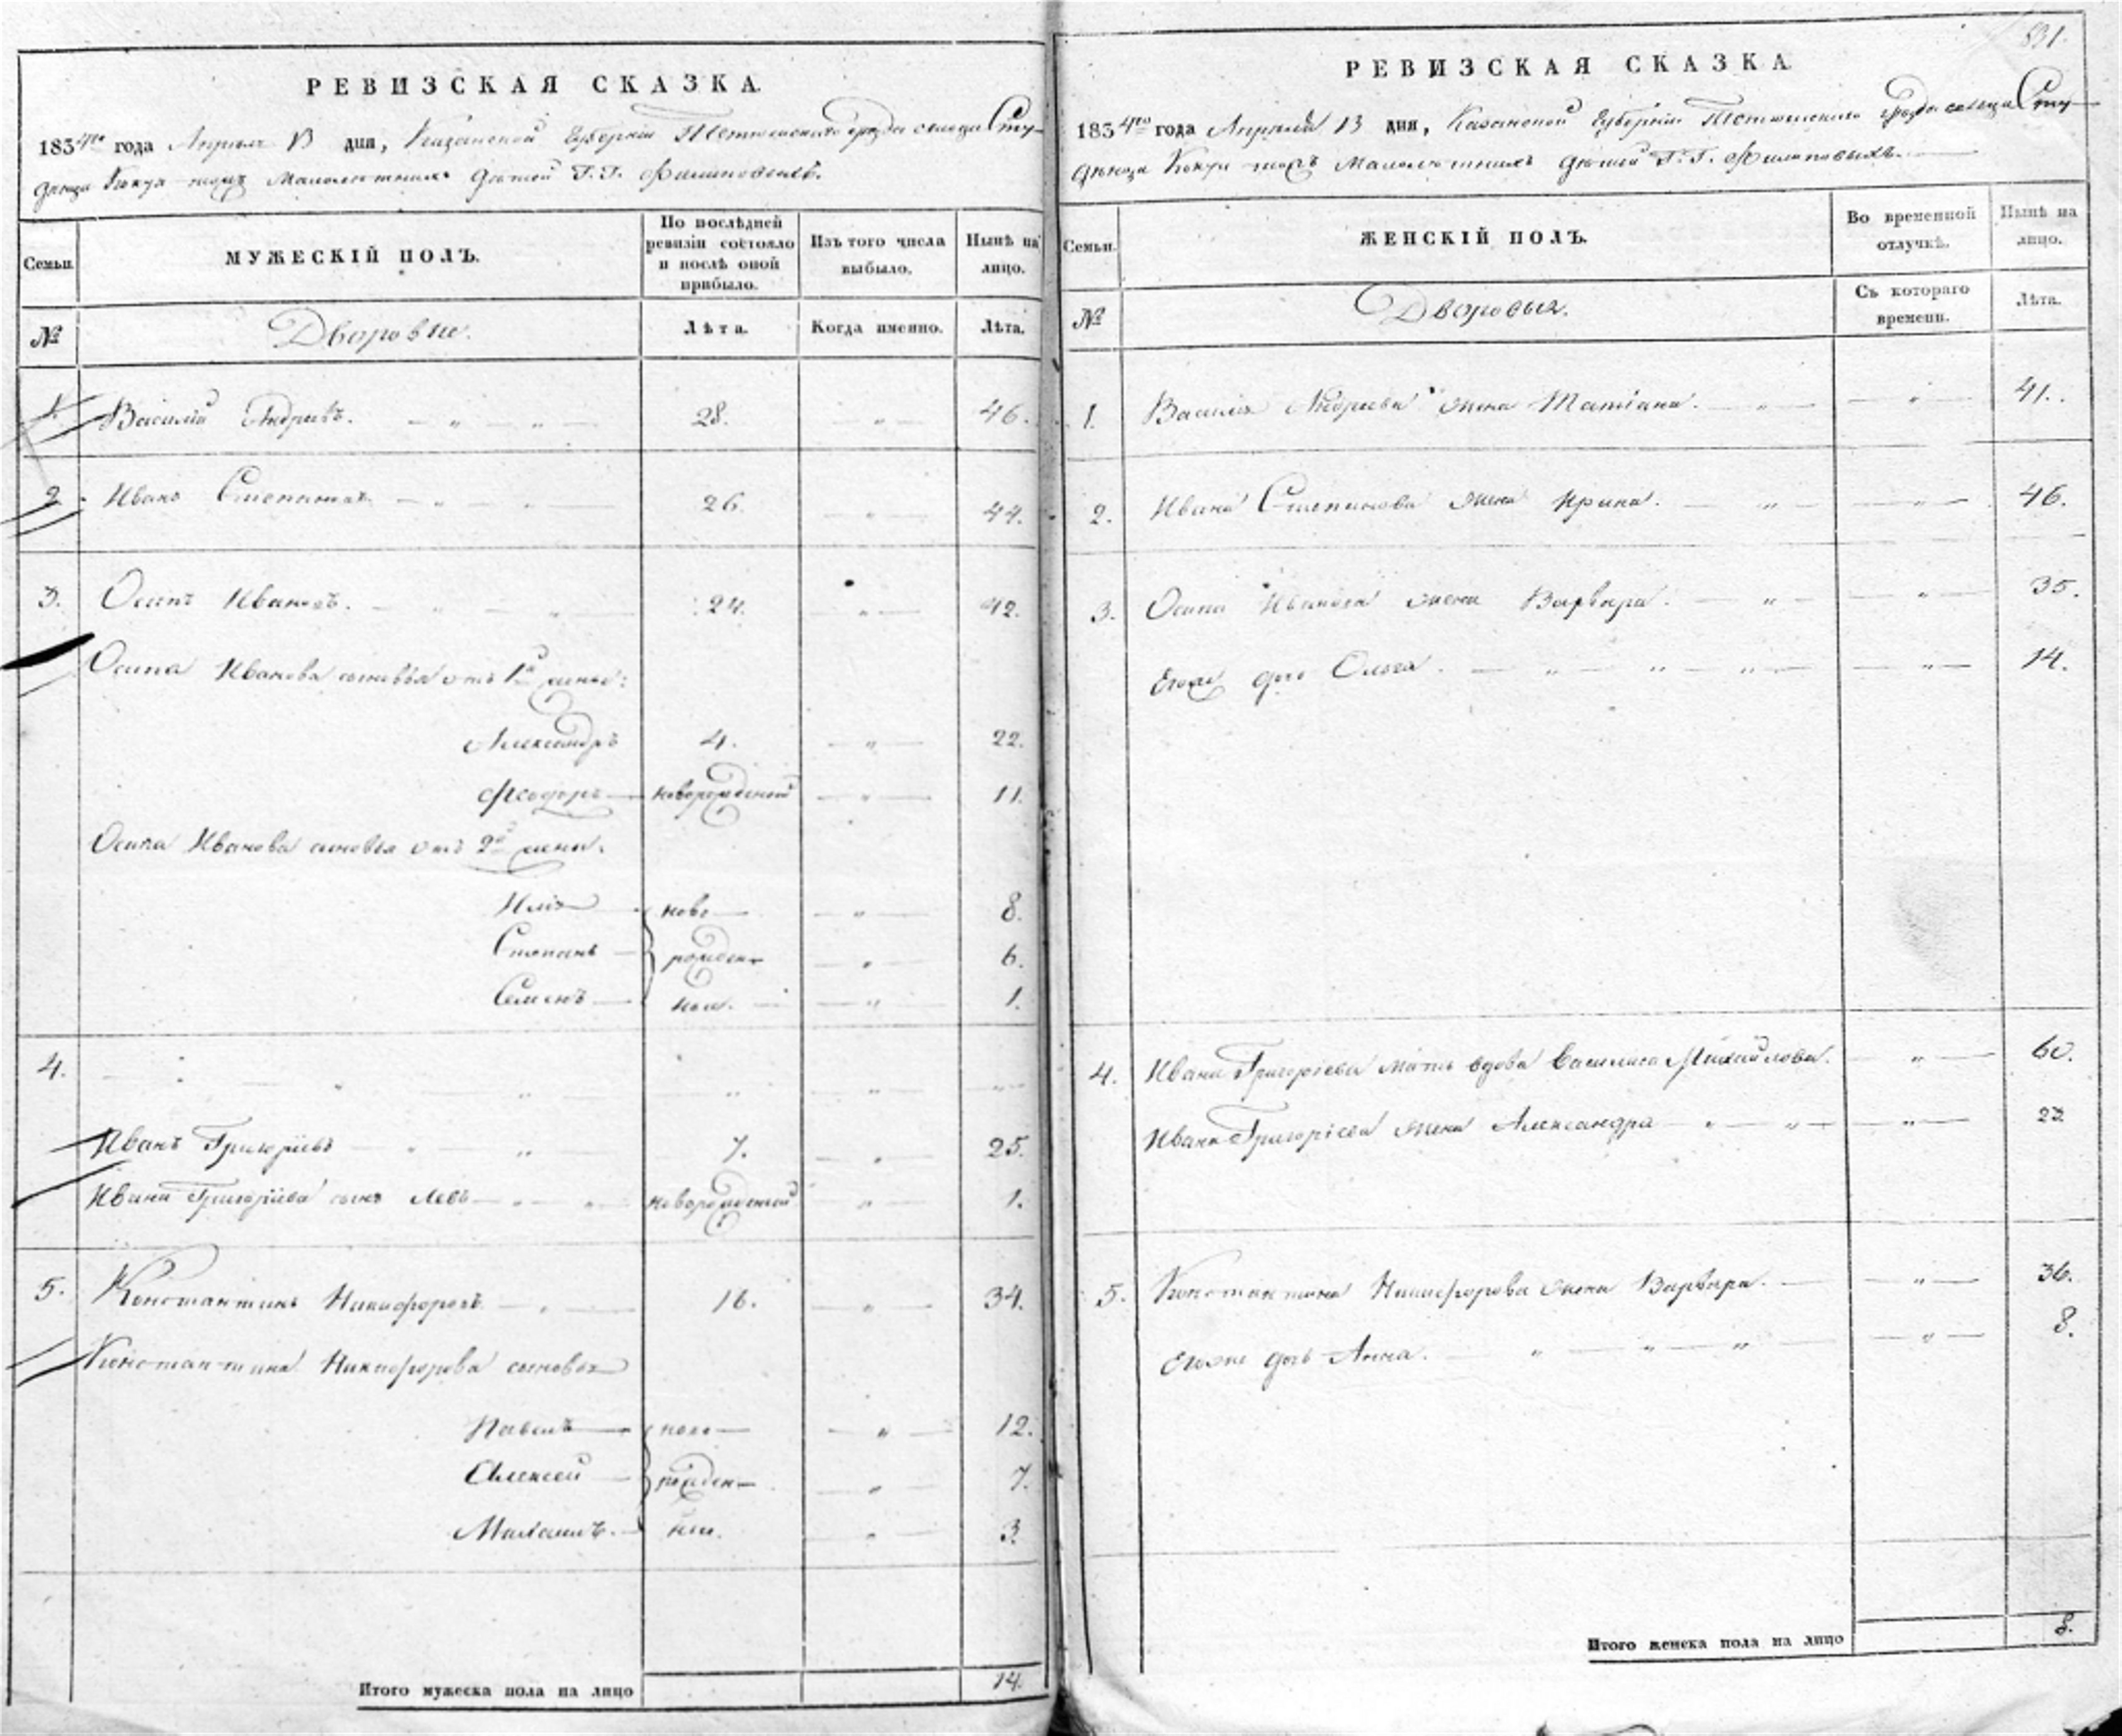 РЕВИЗСКАЯ СКАЗКА.
1834го года Апреля 13 дня, Казанской Губернии Тетюшскаго уѣзда сельца Сту-
денца Кокуя тожъ Малолетныхъ дѣтей Г. Г. Филиповыхъ.
Семьи.
МУЖЕСКІЙ ПОЛЪ.
По послѣдней ревизіи состояло и послѣ оной прибыло.
Изъ того числа выбыло.
Нынѣ на лицо.
№
Дворовые.
Лѣта.
Когда именно.
Лѣта.
1. Василій Андреевъ. 28. 46.
2. Иванъ Степановъ. 26. 44.
3. Осипъ Ивановъ. 24. 42.
Осипа Иванова сыновья отъ 1й жены:
Александръ 4. 22.
Феодоръ новорожденной 11.
Осипа Иванова сыновья отъ 2й жены.
Илья ново 8.
Степанъ рожден 6.
Семенъ ные. 1.
4.
Иванъ Григорьевъ 7. 25.
Ивана Григорьева сынъ Левъ новорожденной 1.
5. Константинъ Никифоровъ. 16. 34.
Константина Никифорова сыновья
Павелъ ново 12.
Алексей рожден 7.
Михаилъ. ные. 3.
Итого мужеска пола на лицо 14.
831.
РЕВИЗСКАЯ СКАЗКА
1834го года Апреля 13 дня, Казанской Губерніи Тетюшскаго уѣзда сельца Сту-
денца Кокуя тожъ Малолѣтныхъ дѣтей Г. Г. Филиповыхъ.
Семьи.
ЖЕНСКІЙ ПОЛЪ.
Во временной отлучкѣ.
Нынѣ на лицо.
№
Дворовыя.
Съ котораго времени.
Лѣта.
1. Василья Андреева жена Татіана. 41.
2. Ивана Степанова жена Ирина. 46.
3. Осипа Иванова жена Варвара. 35.
Егоже дочь Ольга. 14.
4. Ивана Григорьева мать вдова Василиса Михайлова. 60.
Ивана Григорьева жена Александра 23
5. Константина Никифорова жена Варвара. 36.
Егоже дочь Анна. 8.
Итого женска пола на лицо 8.